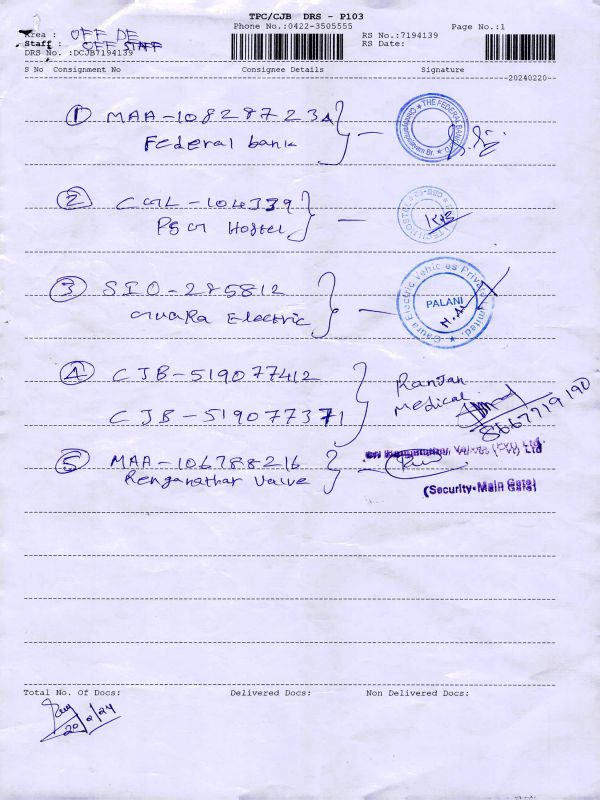 TPC/CJB DRS - P103
Phone No.:0422-3505555
Page No.:1
Area : OFF DE
Staff : OFF STAFF
DRS No. :DCJB7194139
RS No.:7194139
RS Date:
S No Consignment No Consignee Details Signature
20240220
① MAA-108287234
Federal bank
THE FEDERAL BANK
② CGL-104339
PSG Hostel
③ SIO-285812
Gaura Electric
Gaura Electric Vehicles Private Limited.
PALANI
④ CJB-519077412
CJB-519077371
Ranjan
Medical
8667719190
⑤ MAA-106788216
Renganathar Valve
Sri Renganathar Valves (Pvt) Ltd
(Security-Main Gate)
Total No. Of Docs: Delivered Docs: Non Delivered Docs:
20/2/24